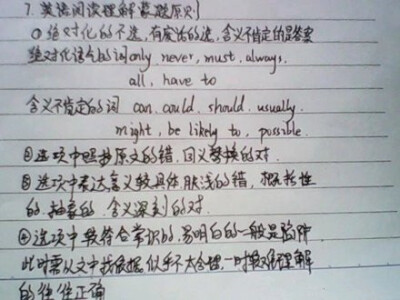 7. 英语阅读理解蒙题原则
①绝对化的不选,有废话的选,含义不肯定的是答案
绝对化语气的词only, never, must, always,
all, have to
含义不肯定的词 can, could, should, usually.
might, be likely to, possible.
②选项中照抄原文的错,同义替换的对.
③选项中表达意义较具体肤浅的错,概括性
的,抽象的,含义深刻的对.
④选项中较符合常识的,易明白的一般是陷阱
此时需从文中找依据,似乎不太合理,一时难以理解
的往往正确